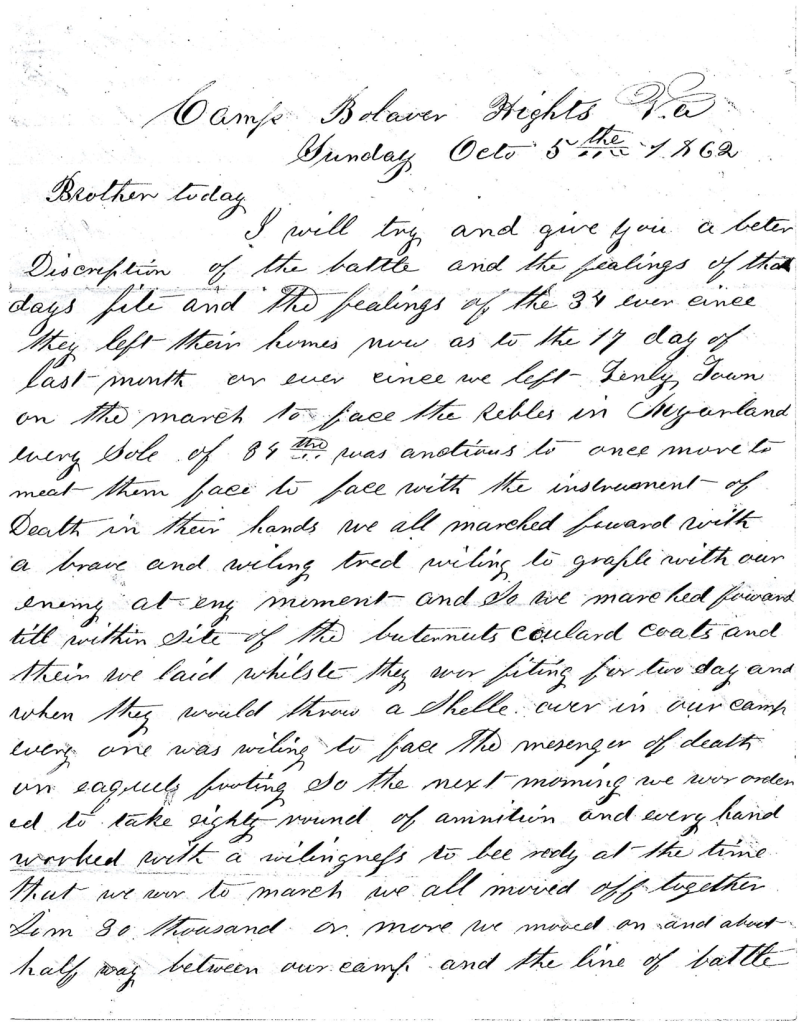 Camp Bolaver Hights Va
Sunday Octo 5 the 1862
Brother today
I will try and give you a beter
Discription of the battle and the fealings of that
days fite and the fealings of the 34 ever cince
they left their homes now as to the 17 day of
last month or ever cince we left Tenly Town
on the march to face the Rebles in Myarland
every Sole of 34 the was anctious to once more to
meat them face to face with the instrument of
Death in their hands we all marched foward with
a brave and wiling tred wiling to graple with our
enemy at eny moment and So we marched foward
till within Site of the buternuts coulard coats and
their we laid whilste they wor fiting for two day and
when they would throw a Shelle over in our camp
every one was wiling to face the mesenger of death
on eaquels footing So the next morning we wor order
ed to take eighty round of amnition and every hand
worked with a wilingness to bee redy at the time
that we wor to march we all moved off together
Som 30 thousand or more we moved on and about
half way between our camp and the line of battle